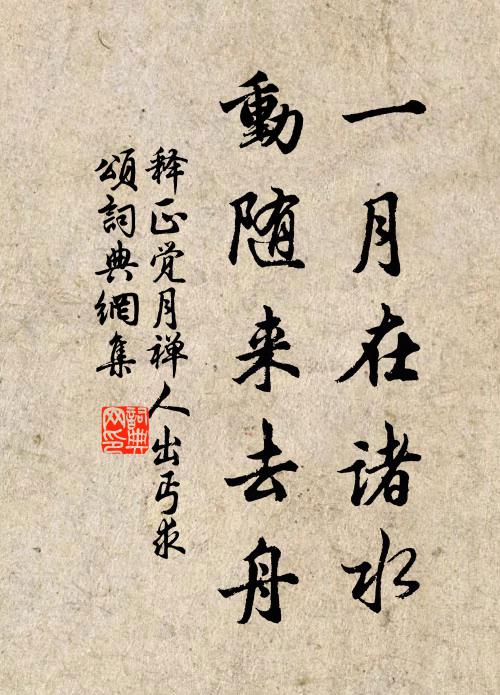 一月在诸水
動随来去舟
释正觉月禅人出丐求
頌詞典網集
詞典
网印